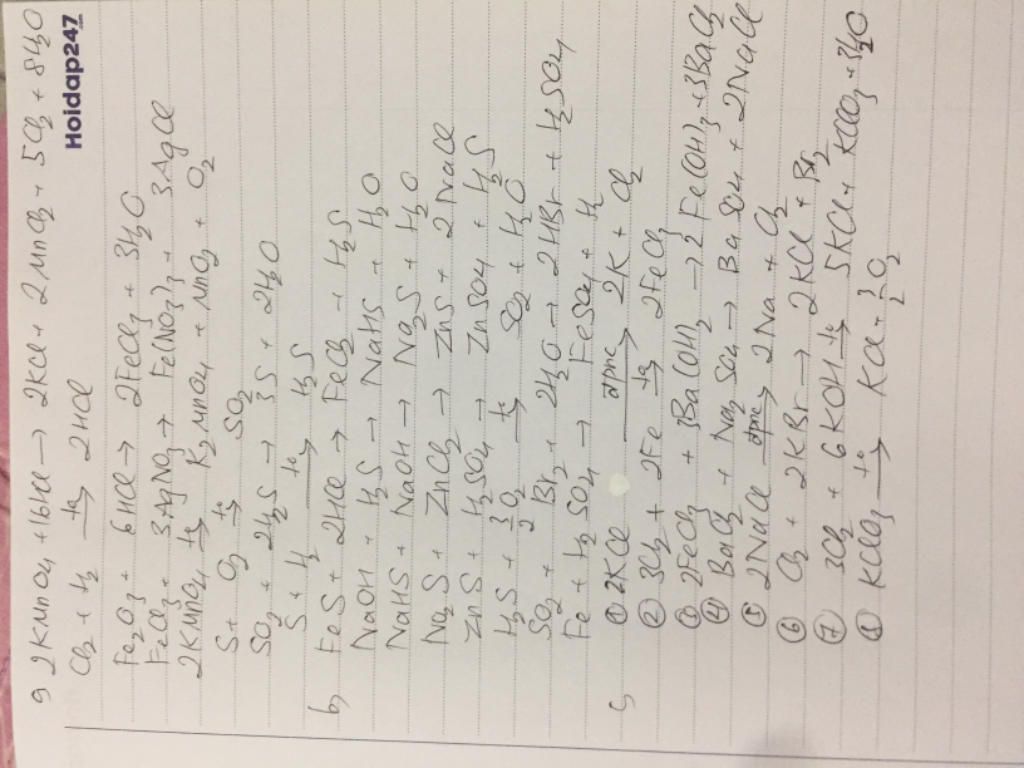 a, 2KMnO4 + 16HCl → 2KCl + 2MnCl2 + 5Cl2 + 8H2O
Hoidap247
Cl2 + H2 -to→ 2HCl
Fe2O3 + 6HCl → 2FeCl3 + 3H2O
FeCl3 + 3AgNO3 → Fe(NO3)3 + 3AgCl
2KMnO4 -to→ K2MnO4 + MnO2 + O2
S + O2 -to→ SO2
SO2 + 2H2S → 3S + 2H2O
S + H2 -to→ H2S
b, FeS + 2HCl → FeCl2 + H2S
NaOH + H2S → NaHS + H2O
NaHS + NaOH → Na2S + H2O
Na2S + ZnCl2 → ZnS + 2NaCl
ZnS + H2SO4 → ZnSO4 + H2S
H2S + 3/2 O2 -to→ SO2 + H2O
SO2 + Br2 + 2H2O → 2HBr + H2SO4
Fe + H2SO4 → FeSO4 + H2
c, ① 2KCl -đpnc→ 2K + Cl2
② 3Cl2 + 2Fe -to→ 2FeCl3
③ 2FeCl3 + 3Ba(OH)2 → 2Fe(OH)3 + 3BaCl2
④ BaCl2 + Na2SO4 → BaSO4 + 2NaCl
⑤ 2NaCl -đpnc→ 2Na + Cl2
⑥ Cl2 + 2KBr → 2KCl + Br2
⑦ 3Cl2 + 6KOH -to→ 5KCl + KClO3 + 3H2O
⑧ KClO3 -to→ KCl + 3/2 O2